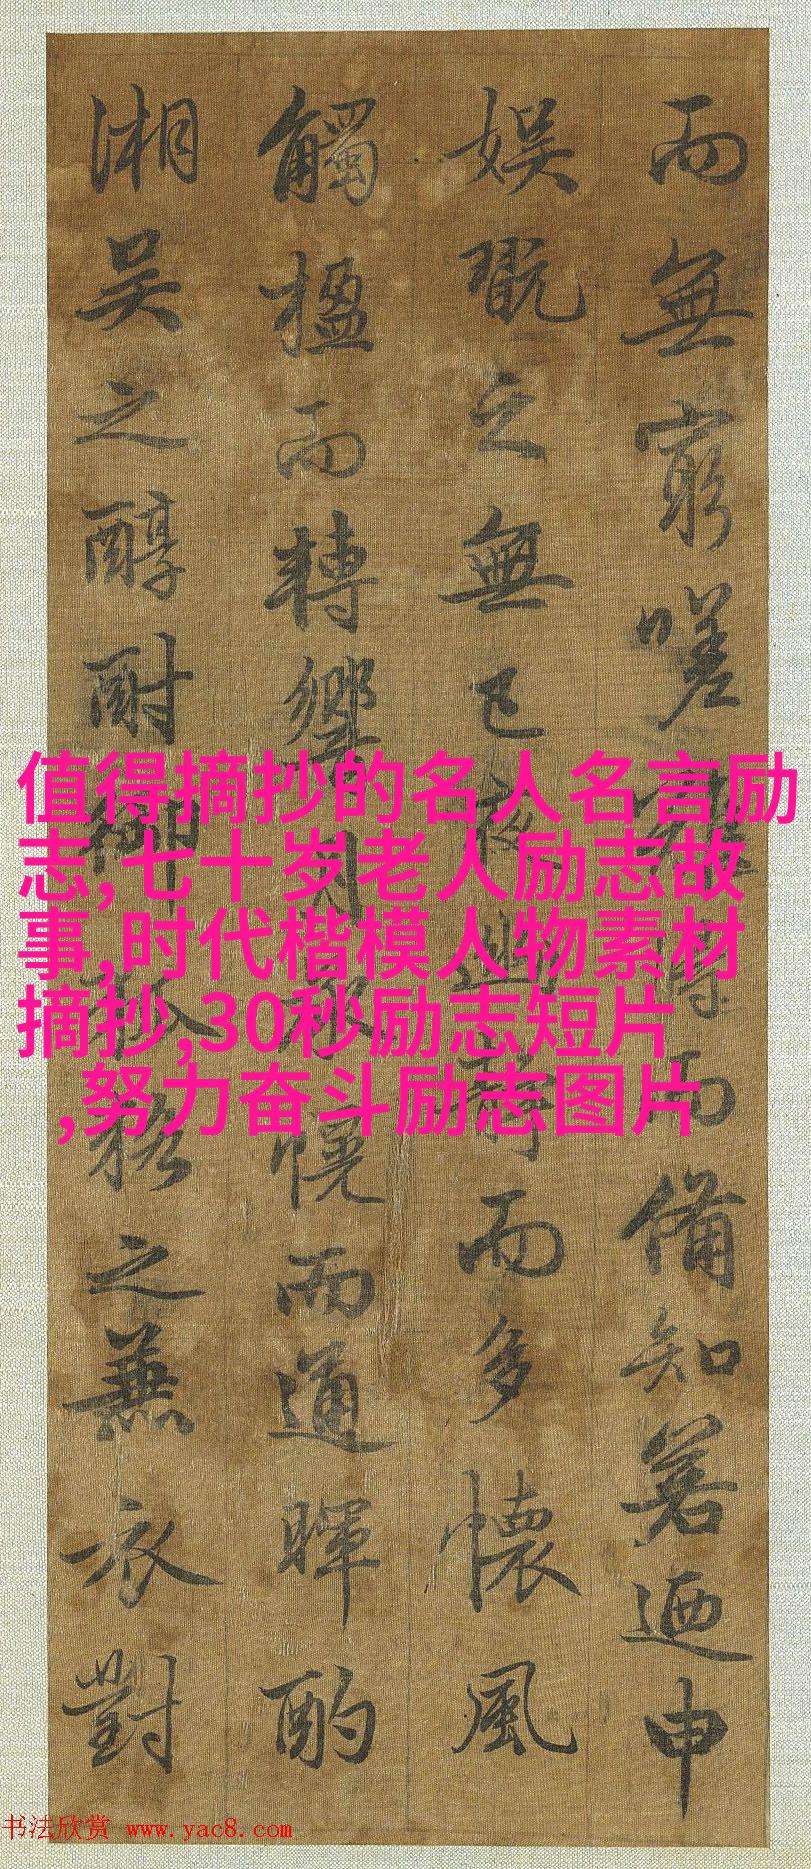 而無窮嗟難得而備知若迺申
娛翫之無已夜迥靜而多懷風
觸楹而轉響月承幌而通暉酌
湘吳之醇酎御狐狢之兼衣對
值得摘抄的名人名言励
志,七十岁老人励志故
事,时代楷模人物素材
摘抄,30秒励志短片
,努力奋斗励志图片
书法欣赏 www.yac8.com